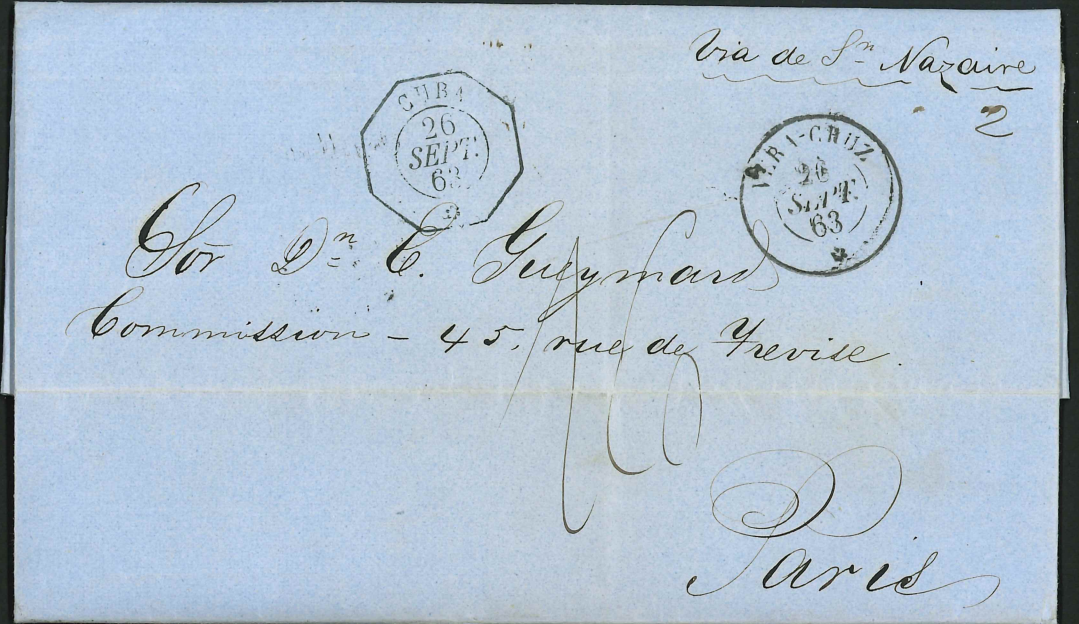 Via de Sn Nazaire
2
CUBA
26
SEPT.
63
VERA-CRUZ
26
SEPT.
63
Sor Dn C. Gueymard
Commission - 45, rue de Trevise.
16
Paris